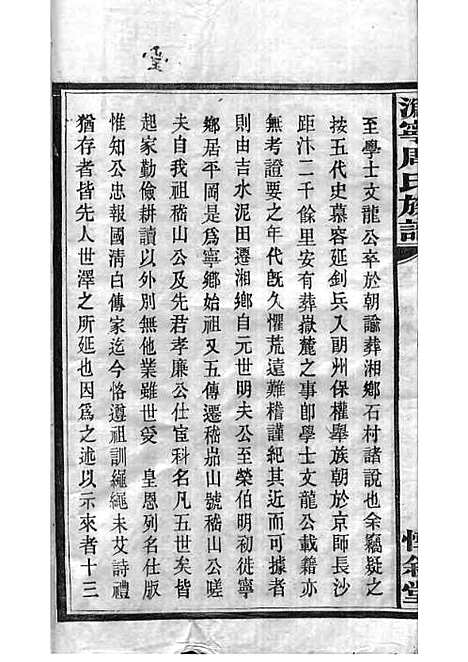 至學士文龍公卒於朝諭葬湘鄉石村諸說也余竊疑之
按五代史慕容延釗兵入朗州保權舉族朝於京師長沙
距汴二千餘里安有葬嶽麓之事卽學士文龍公載籍亦
無考證要之年代旣久懼荒遠難稽謹紀其近而可據者
則由吉水泥田遷湘鄉自元世明夫公至榮伯明初徙寧
鄉居平岡是爲寧鄉始祖又五傳遷嵇茄山號嵇山公嗟
夫自我祖嵇山公及先君孝廉公仕宦科名凡五世矣皆
起家勤儉耕讀以外別無他業雖世受 皇恩列名仕版
惟知公忠報國清白傳家迄今恪遵祖訓繩繩未艾詩禮
猶存者皆先人世澤之所延也因爲之述以示來者十三